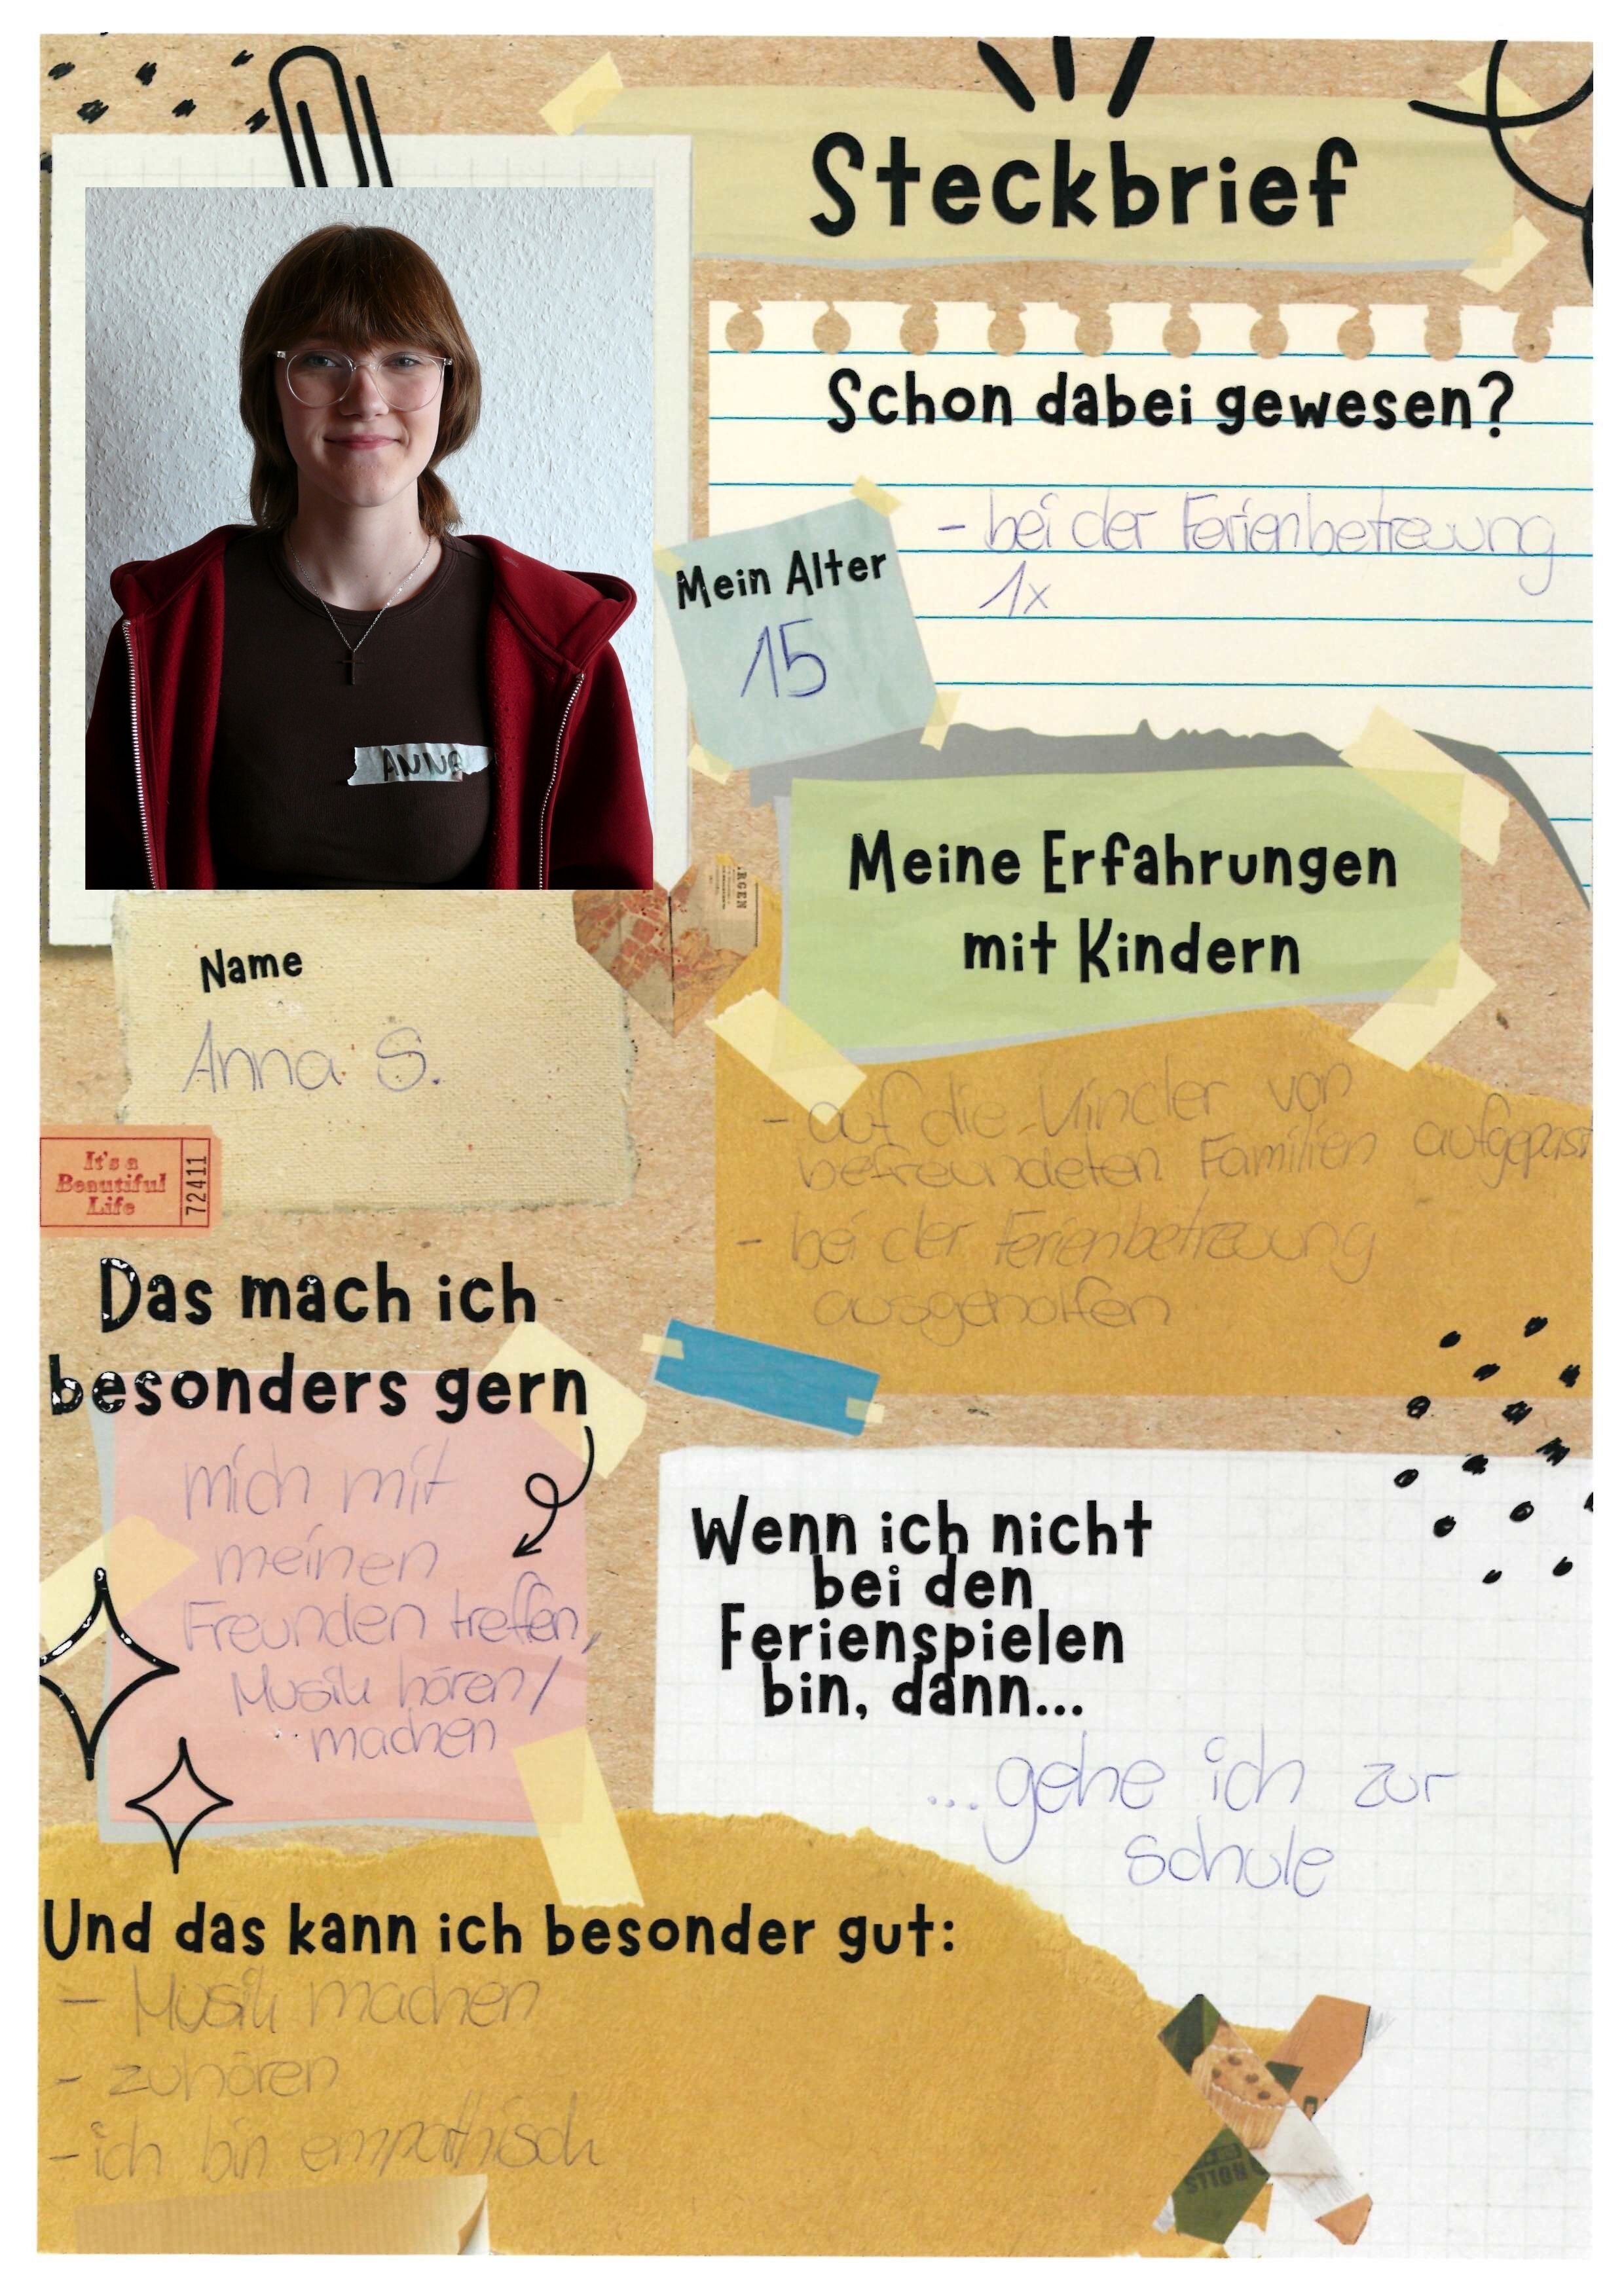 Steckbrief
Schon dabei gewesen?
- bei der Ferienbetreuung
1x
Mein Alter
15
ANNA
Meine Erfahrungen
mit Kindern
- auf die Kinder von
befreundeten Familien aufgepasst
- bei der Ferienbetreuung
ausgeholfen
Name
Anna S.
It's a
Beautiful
Life
72411
Das mach ich
besonders gern
mich mit
meinen
Freunden treffen,
Musik hören/
machen
Wenn ich nicht
bei den
Ferienspielen
bin, dann...
...gehe ich zur
Schule
Und das kann ich besonder gut:
- Musik machen
- zuhören
- ich bin empathisch